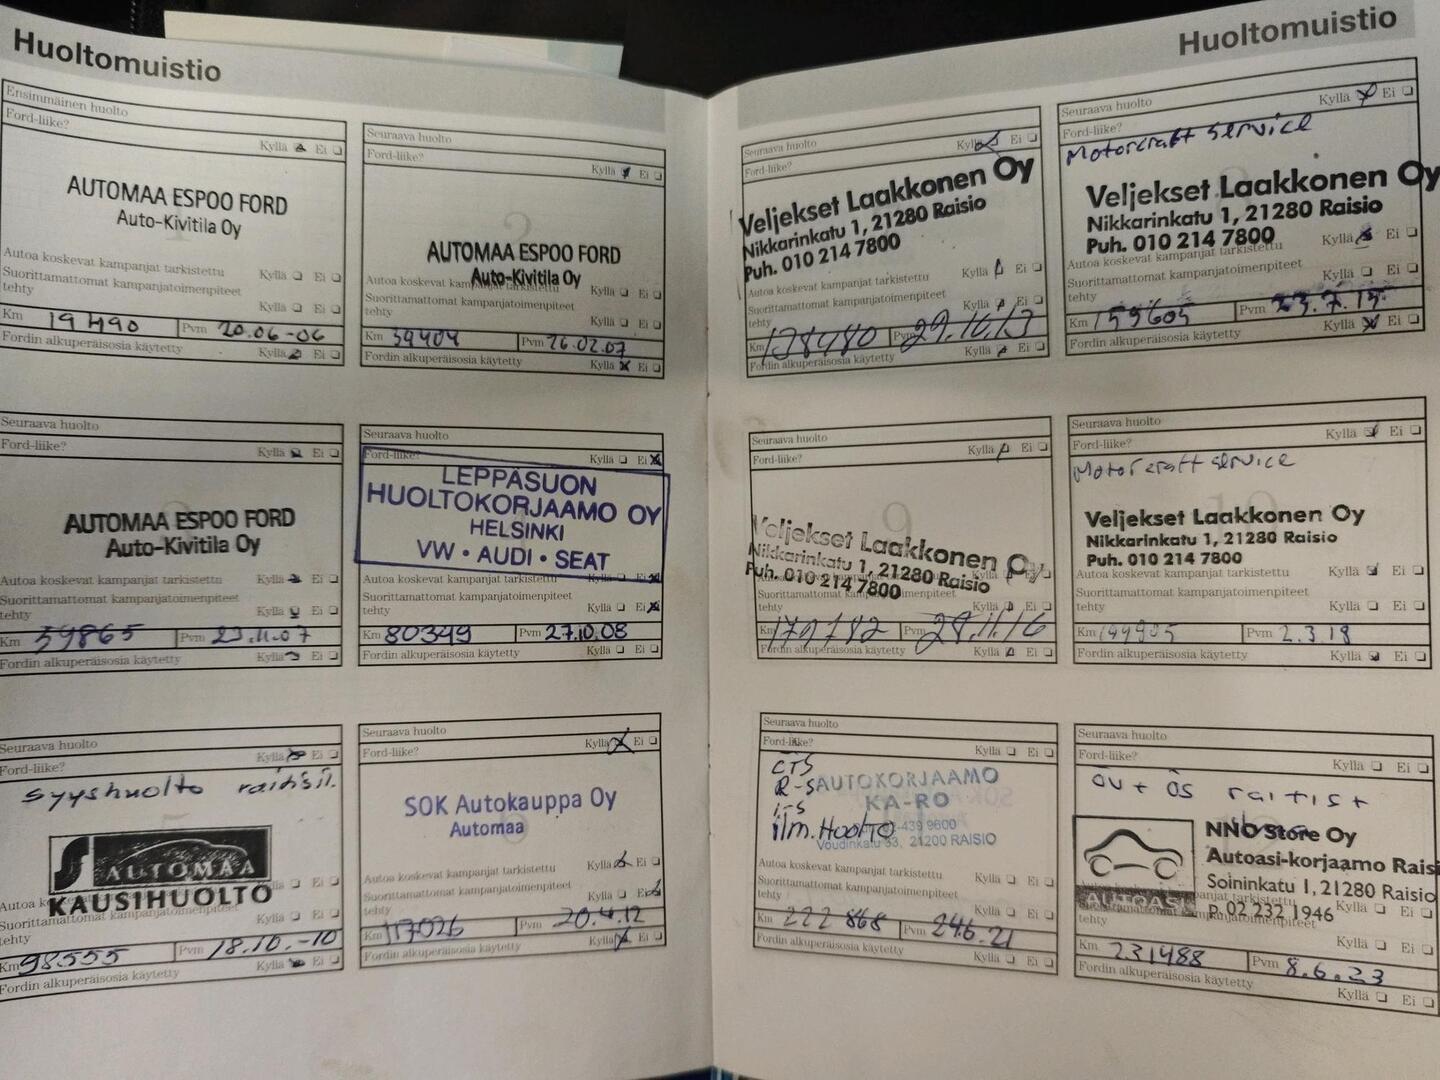 Huoltomuistio
Ensimmäinen huolto
Ford-liike?
Kyllä Ei
AUTOMAA ESPOO FORD
Auto-Kivitila Oy
Autoa koskevat kampanjat tarkistettu Kyllä Ei
Suorittamattomat kampanjatoimenpiteet
tehty Kyllä Ei
Km 19490 Pvm 20.06-06
Fordin alkuperäisosia käytetty Kyllä Ei
Seuraava huolto
Ford-liike?
Kyllä Ei
AUTOMAA ESPOO FORD
Auto-Kivitila Oy
Autoa koskevat kampanjat tarkistettu Kyllä Ei
Suorittamattomat kampanjatoimenpiteet
tehty Kyllä Ei
Km 39404 Pvm 26.02.07
Fordin alkuperäisosia käytetty Kyllä Ei
Seuraava huolto
Ford-liike? Kyllä Ei
AUTOMAA ESPOO FORD
Auto-Kivitila Oy
Autoa koskevat kampanjat tarkistettu Kyllä Ei
Suorittamattomat kampanjatoimenpiteet
tehty Kyllä Ei
Km 59865 Pvm 23.11.07
Fordin alkuperäisosia käytetty Kyllä Ei
Seuraava huolto
Ford-liike? Kyllä Ei
LEPPÄSUON
HUOLTOKORJAAMO OY
HELSINKI
VW • AUDI • SEAT
Autoa koskevat kampanjat tarkistettu Ei
Suorittamattomat kampanjatoimenpiteet
tehty Kyllä Ei
Km 80349 Pvm 27.10.08
Fordin alkuperäisosia käytetty Kyllä Ei
Seuraava huolto
Ford-liike? Kyllä Ei
syyshuolto
AUTOMAA
KAUSIHUOLTO
Suorittamattomat kampanjatoimenpiteet
tehty Kyllä Ei
Km 98555 Pvm 18.10.-10
Fordin alkuperäisosia käytetty Kyllä Ei
Seuraava huolto
Ford-liike? Kyllä Ei
SOK Autokauppa Oy
Automaa
Autoa koskevat kampanjat tarkistettu Kyllä Ei
Suorittamattomat kampanjatoimenpiteet
tehty Kyllä Ei
Km 117026 Pvm 20.4.12
Fordin alkuperäisosia käytetty Kyllä Ei
Huoltomuistio
Seuraava huolto
Ford-liike? Kyllä Ei
Veljekset Laakkonen Oy
Nikkarinkatu 1, 21280 Raisio
Puh. 010 214 7800
Autoa koskevat kampanjat tarkistettu Kyllä Ei
Suorittamattomat kampanjatoimenpiteet
tehty Kyllä Ei
Km 138480 Pvm 29.10.13
Fordin alkuperäisosia käytetty Kyllä Ei
Seuraava huolto
Ford-liike? Kyllä Ei
Motorcraft service
Veljekset Laakkonen Oy
Nikkarinkatu 1, 21280 Raisio
Puh. 010 214 7800
Autoa koskevat kampanjat tarkistettu Kyllä Ei
Suorittamattomat kampanjatoimenpiteet
tehty Kyllä Ei
Km 159605 Pvm 23.7.15
Fordin alkuperäisosia käytetty Kyllä Ei
Seuraava huolto
Ford-liike? Kyllä Ei
9
Veljekset Laakkonen Oy
Nikkarinkatu 1, 21280 Raisio
Puh. 010 214 7800
Suorittamattomat kampanjatoimenpiteet
tehty Kyllä Ei
Km 179782 Pvm 28.11.16
Fordin alkuperäisosia käytetty Kyllä Ei
Seuraava huolto
Ford-liike? Kyllä Ei
Motorcraft service
Veljekset Laakkonen Oy
Nikkarinkatu 1, 21280 Raisio
Puh. 010 214 7800
Autoa koskevat kampanjat tarkistettu Kyllä Ei
Suorittamattomat kampanjatoimenpiteet
tehty Kyllä Ei
Km 199905 Pvm 2.3.18
Fordin alkuperäisosia käytetty Kyllä Ei
Seuraava huolto
Ford-liike? Kyllä Ei
AUTOKORJAAMO
KA-RO
ilm. Huolto
-439 9600
Voudinkatu 33, 21200 RAISIO
Autoa koskevat kampanjat tarkistettu Kyllä Ei
Suorittamattomat kampanjatoimenpiteet
tehty Kyllä Ei
Km 222 868 Pvm 24.6.21
Fordin alkuperäisosia käytetty Kyllä Ei
Seuraava huolto
Ford-liike? Kyllä Ei
öv + ös
NNO Store Oy
Autoasi-korjaamo Rais
Soininkatu 1, 21280 Raisio
AUTOASI
P. 02 232 1946
tehty Kyllä Ei
Km 231488 Pvm 8.6.23
Fordin alkuperäisosia käytetty Kyllä Ei